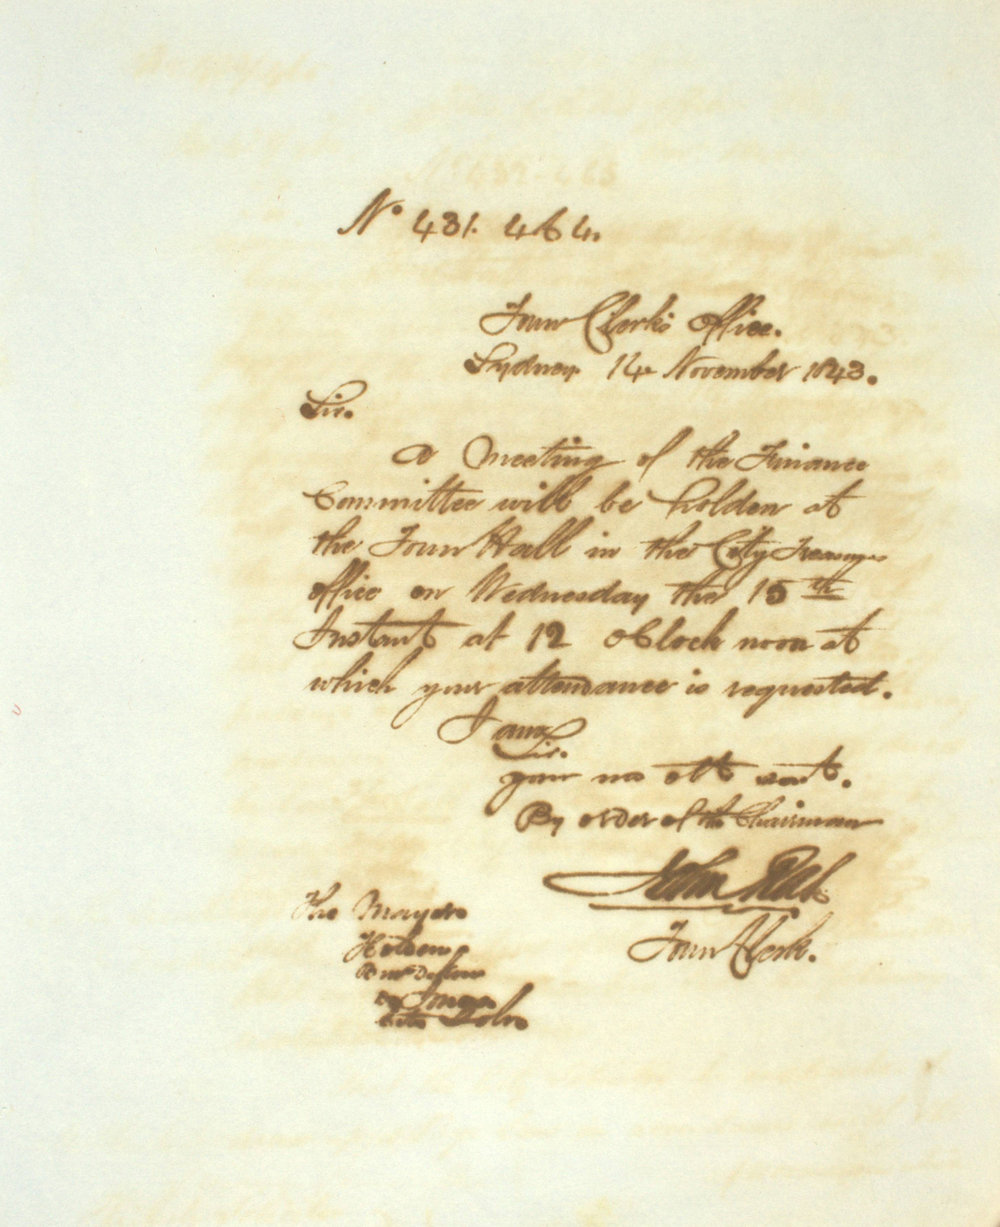 No 431. 4 to 4.
Town Clerk's Office.
Sydney 14 November 1843.
Sir.
A Meeting of the Finance
Committee will be holden at
the Town Hall in the City
office on Wednesday the 15th
Instant at 12 oClock noon at
which your attendance is requested.
I am
Sir.
your mo obt
By order of the Chairman
John
Town Clerk.
The Mayor